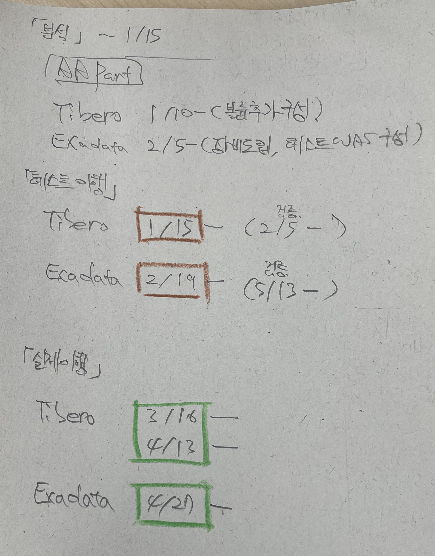 「분석」 ~ 1/15
AA Part
Tibero 1/10-(볼륨추가구성)
Exadata 2/5-(장비도입, 테스트WAS구성)
「테스트이행」
검증
Tibero 1/15 - (2/5 - )
검증
Exadata 2/19 - (5/13 - )
「실제이행」
Tibero 3/16 -
4/13 -
Exadata 4/27 -